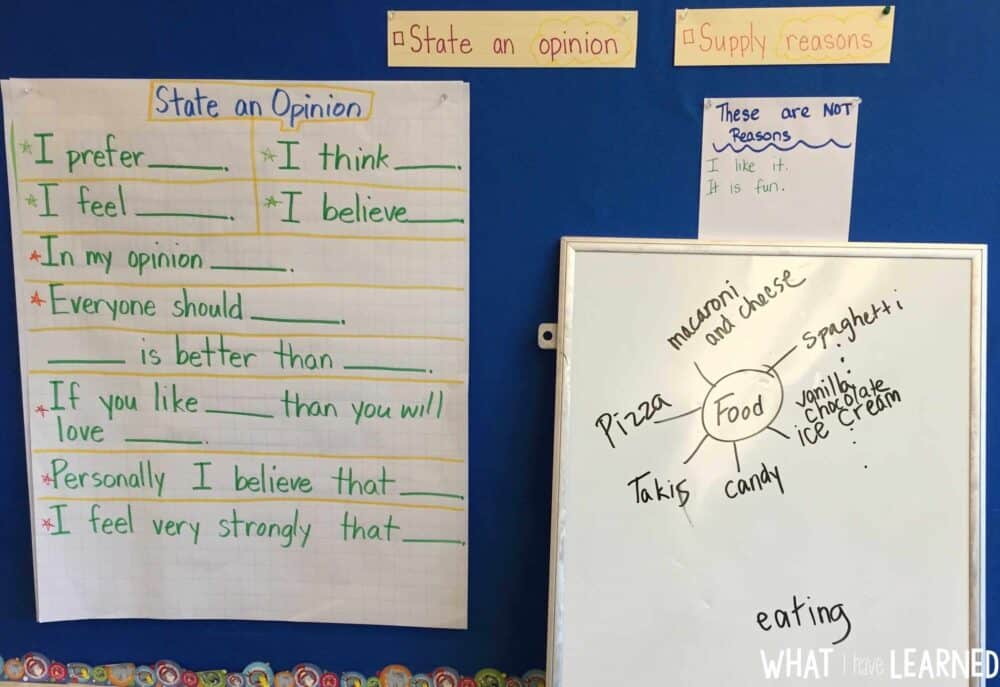 State an opinion
Supply reasons
State an Opinion
I prefer ____.
I think ____.
I feel ____.
I believe ____
In my opinion ____.
Everyone should ____.
____ is better than ____.
If you like ____ than you will
love ____.
Personally I believe that ____
I feel very strongly that ____.
These are NOT
Reasons
I like it.
It is fun.
macaroni
and cheese
Spaghetti
Pizza
Food
vanilla
chocolate
ice cream
Takis
candy
eating
WHAT I have LEARNED